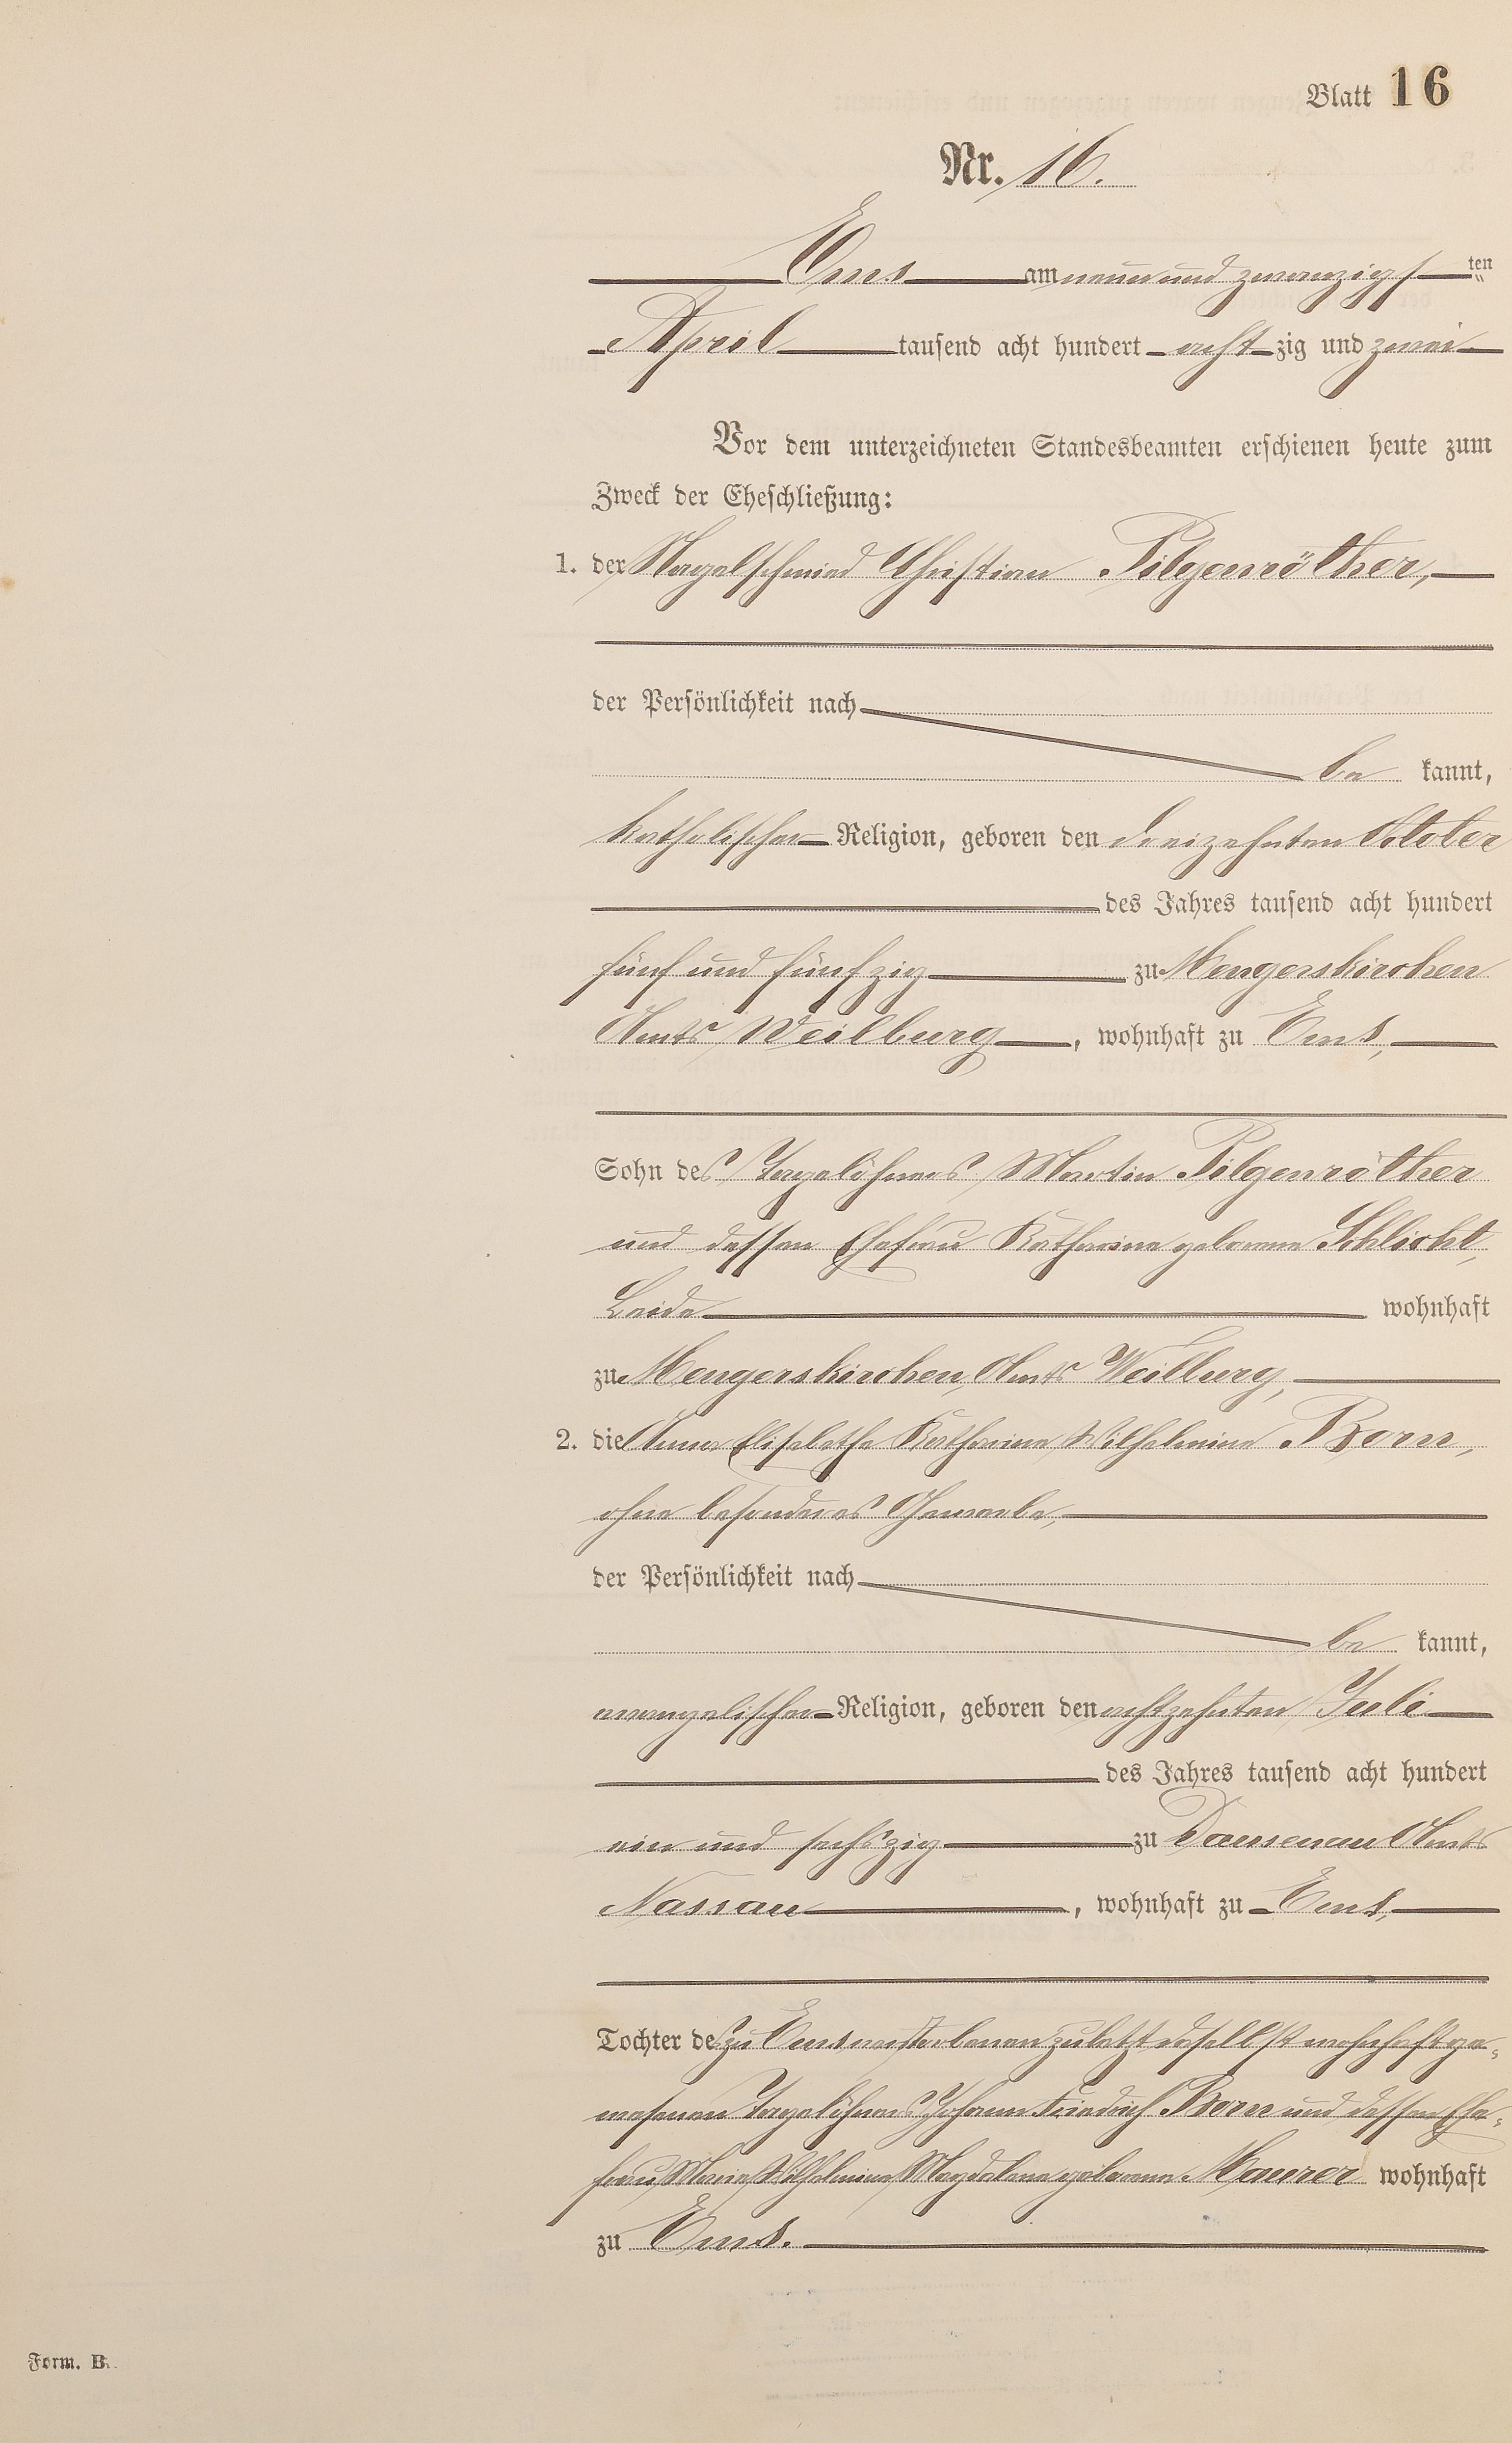 Blatt 16
Nr. 16.
Ems am neun und zwanzigsten
April tausend acht hundert achtzig und zwei
Vor dem unterzeichneten Standesbeamten erschienen heute zum
Zweck der Eheschließung:
1. der Nagelschmied Christian Pilgenröther,
der Persönlichkeit nach
be kannt,
katholischer Religion, geboren den dreizehnten Oktober
des Jahres tausend acht hundert
fünf und fünfzig zu Mengerskirchen
Amts Weilburg, wohnhaft zu Ems,
Sohn des Tagelöhners Martin Pilgenröther
und dessen Ehefrau Katharina geborene Schlicht,
Beide wohnhaft
zu Mengerskirchen, Amts Weilburg,
2. die Anna Elisabethe Katharine Wilhelmine Born,
ohne besonderes Gewerbe,
der Persönlichkeit nach
be kannt,
evangelischer Religion, geboren den achtzehnten Juli
des Jahres tausend acht hundert
ein und sechszig zu Dausenau Amts
Nassau, wohnhaft zu Ems,
Tochter des zu Ems verstorbenen zuletzt daselbst wohnhaft ge-
wesenen Tagelöhners Johann Friedrich Born und dessen Ehe-
frau Marie Wilhelmine Magdalene geborene Maurer wohnhaft
zu Ems.
Form. B.